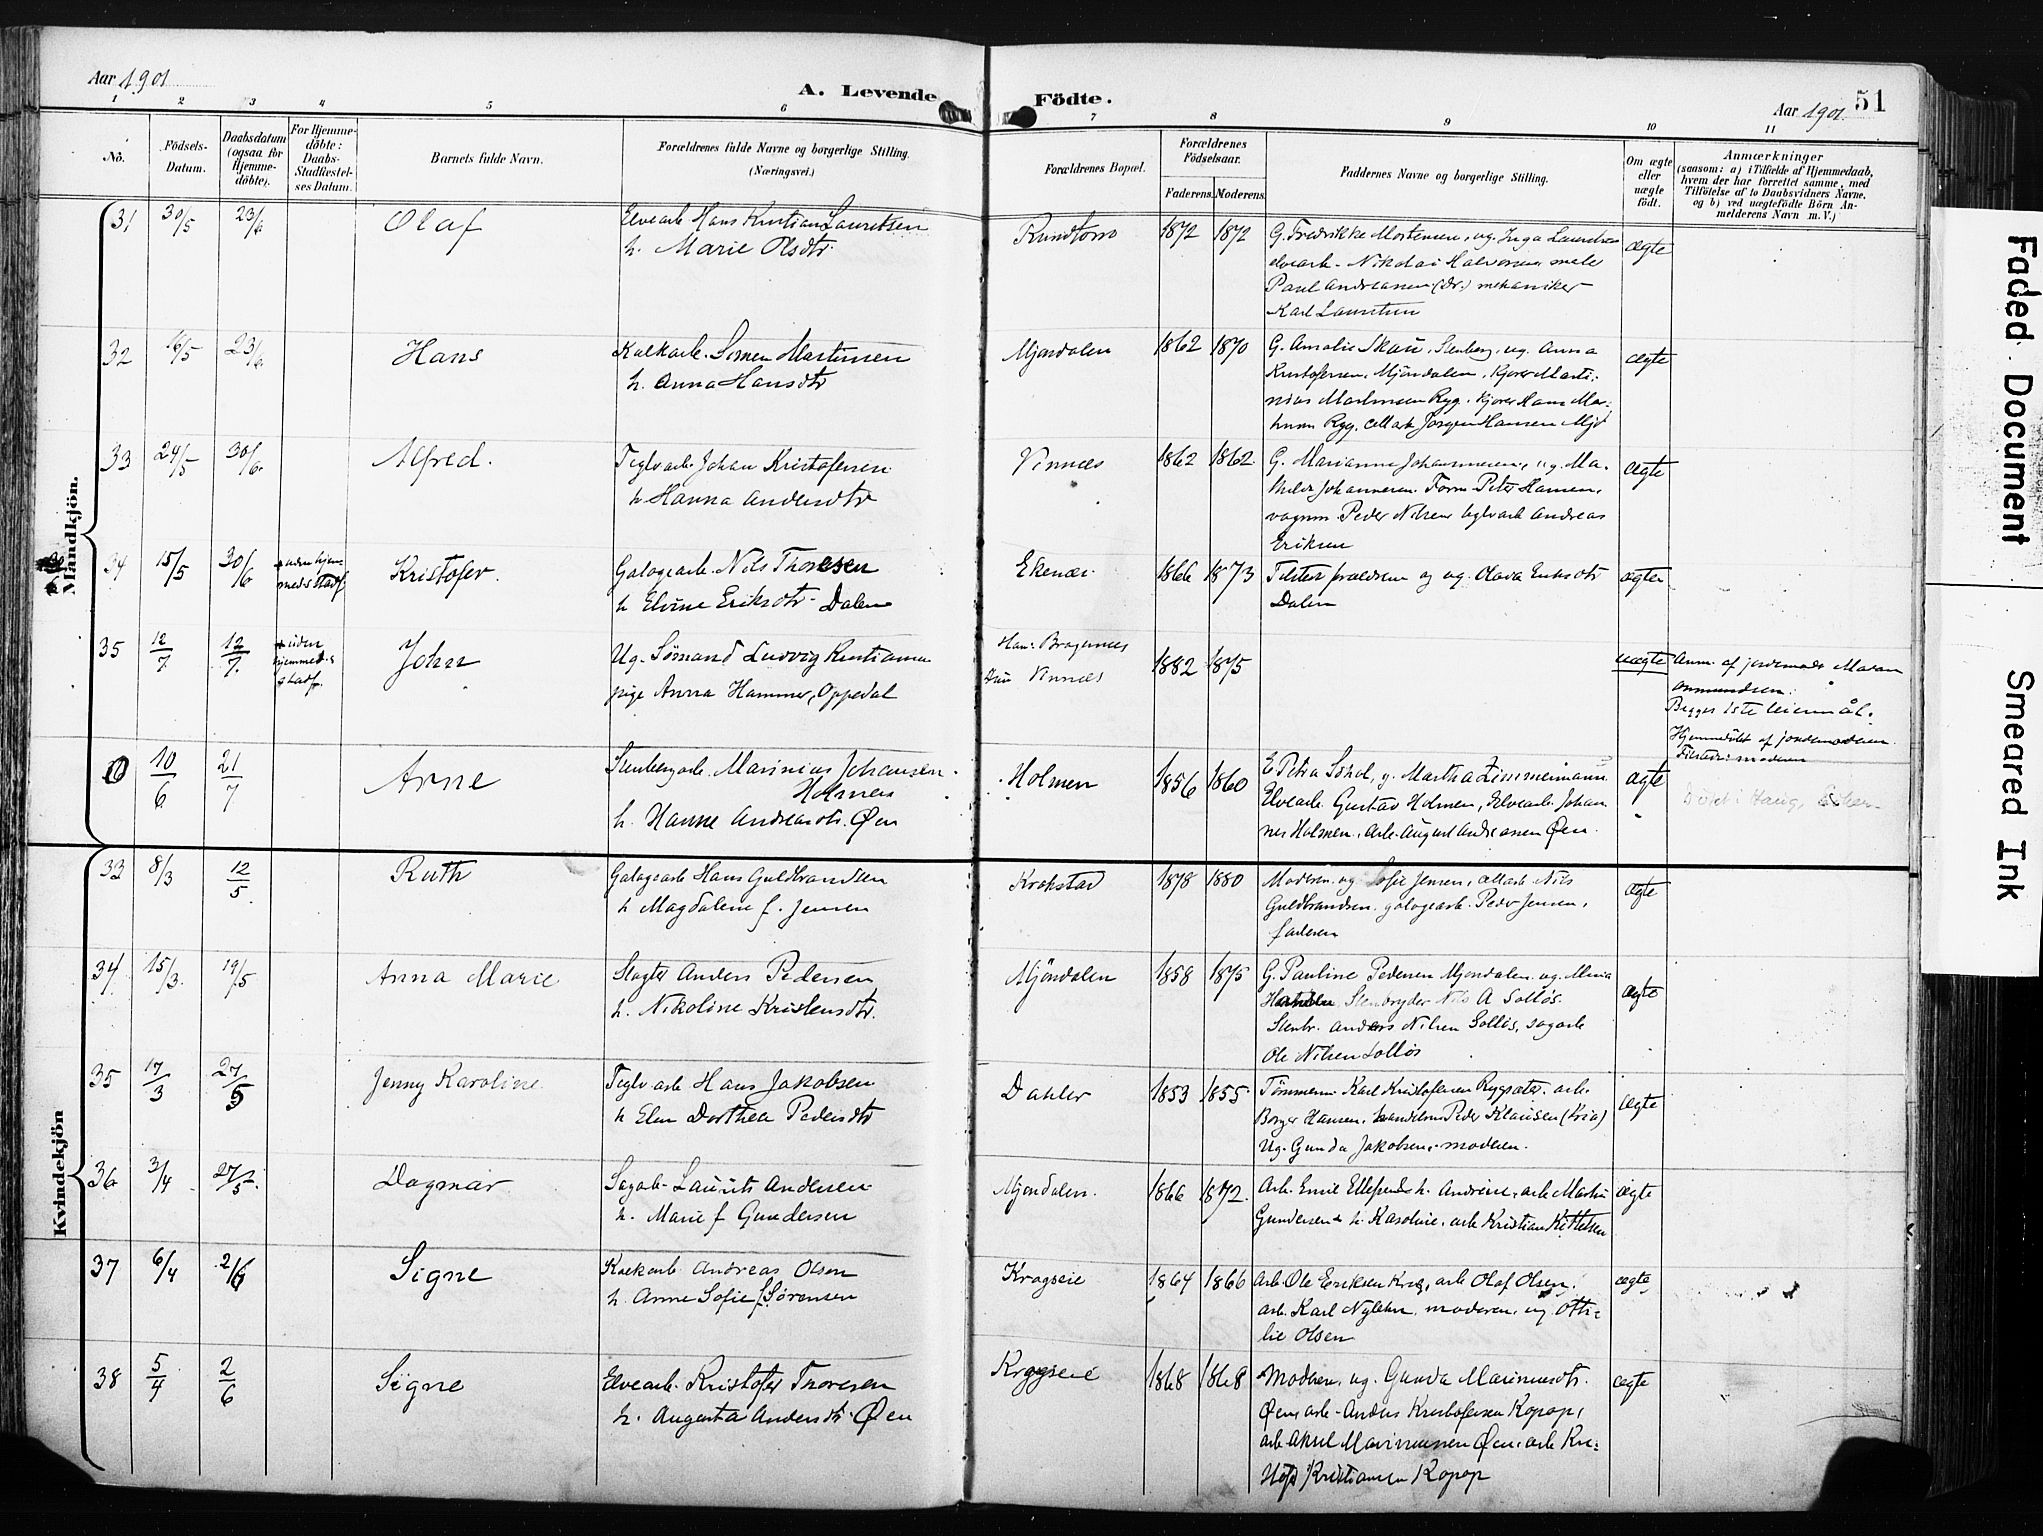 Aar 1901
A. Levende Födte.
Aar 1901
51
1 2 3 4 5 6 7 8 9 10 11
No.
Födsels-Datum.
Daabsdatum (ogsaa for Hjemme-döbte).
For Hjemme-döbte: Daabs-Stadfæstel-ses Datum.
Barnets fulde Navn.
Forældrenes fulde Navne og borgerlige Stilling. (Næringsvei.)
Forældrenes Bopæl.
Forældrenes Födselsaar.
Faderens. Moderens.
Faddernes Navne og borgerlige Stilling.
Om ægte eller uægte födt.
Anmærkninger
(saasom: a) i Tilfælde af Hjemmedaab,
hvem der har forrettet samme, med
Tilföielse af to Daabsvidners Navne,
og b) ved uægtefödte Börn An-
melderens Navn m. V.)
Mandkjön.
31 30/5 23/6 Olaf
Elvearb. Hans Kristian Lauritsen
h. Marie Olsdtr.
1872 1872
G. Fredrikke Mortensen, ug. Inga Lauritsen
elvearb. Nikolai Halvorsen
Paul Andreassen (Dr.) mekaniker
Karl Lauritsen
ægte
32 16/5 23/6 Hans
Kalkarb. Simen Martinsen
h. Anna Hansdtr
Mjøndalen 1862 1870
G. Amalie Skau, Stenberg, ug. Anna
Kristofersen, Mjöndalen, kjører Marti-
nius Martinsen Ryg. kjører Hans Mar-
tinsen Ryg. cellarb Jørgen Hansen Mjd
ægte
33 24/5 30/6 Alfred.
Teglv arb. Johan Kristofersen
h Hanna Andersdtr
Vinnæs 1862 1862
G. Marianne Johannesen, ug. Ma-
thilde Johannesen. Form Peter Hansen,
vognm. Peder Nilsen teglvarb Andreas
Eriksen
ægte
34 15/5 30/6 uden hjem-meds stadf. Kristofer.
Galogearb. Nils Thoresen
h Elvine Eriksdtr. Dalen
Ekenæs 1866 1873
Tilsted forældrene og ug. Olava Eriksdtr
Dalen
ægte
35 12/7 12/7 uden hjemmed.s stadf. John
Ug. Sømand Ludvig Kristiansen
pige Anna Hammer, Oppedal
Han: Bragernes
Hun Vinnæs
1882 1875
uægte
Anm. af jordemoder Maren
Amundsen.
Begges 1ste leiermål.
Hjemmedøbt af jordemoderen.
Tilstede: moderen
10/6 21/7 Arne
Stenbergarb. Marinius Johansen
Holmen
h. Hanne Andreasdtr. Øen
Holmen 1856 1860
E Petra Sohol, g. Martha Zimmermann
Elvearb. Gustav Holmen, Elvearb. Johan-
nes Holmen, Arb. August Andreassen Øen.
ægte
Døbt i Haug,
Kvindekjön
33 8/3 12/5 Ruth
Galogearb Hans Guldbrandsen
h Magdalene f. Jensen
Krokstad 1878 1880
Moderen, ug. Sofie Jensen, cellarb Nils
Guldbrandsen, galogearb. Peder Jensen,
faderen
ægte
34 15/3 19/5 Anna Marie
Slagter Anders Pedersen
h. Nikoline Kristensdtr.
Mjöndalen 1858 1875
G. Pauline Pedersen Mjøndalen, ug. Mina
Stenbryder Nils A Solløs.
Stenbr. Anders Nilsen Solløs, sagarb
Ole Nilsen Solløs
ægte
35 17/3 27/5 Jenny Karoline
Teglv arb Hans Jakobsen
h Elen Dorthea Pedersdtr
Dahler 1853 1855.
Tømmerm. Karl Kristofersen Rygsæter, arb.
Borger Hansen, handelsm Peder Klausen (Kria)
Ug. Gunda Jakobsen, moderen.
ægte
36 3/4 27/5. Dagmar
Sagarb. Laurits Andersen
h. Marie f Gundersen
Mjøndalen. 1866 1872.
Arb. Emil Ellefsen & h. Andrine, arb Martin
Gundersen & h. Karoline, arb Kristian Kittelsen
ægte
37 6/4 2/6 Signe
Kalkarb Andreas Olsen
h. Anne Sofie f. Sørensen
Kragseie 1864 1866
Arb. Ole Eriksen Krag, arb Olaf Olsen,
arb. Karl Nyløkken, moderen, ug Othi-
lie Olsen
ægte
38 5/4 2/6 Signe
Elvearb. Kristofer Thoresen
h. Augusta Andersdtr. Øen
Kragseie 1868 1868
Moderen, ug. Gunda Marinusdtr.
Øen, arb. Anders Kristofersen Kopop,
arb Aksel Marinussen Øen, arb Kri-
stofer Kristiansen Kopop
ægte
Faded Document
Smeared Ink